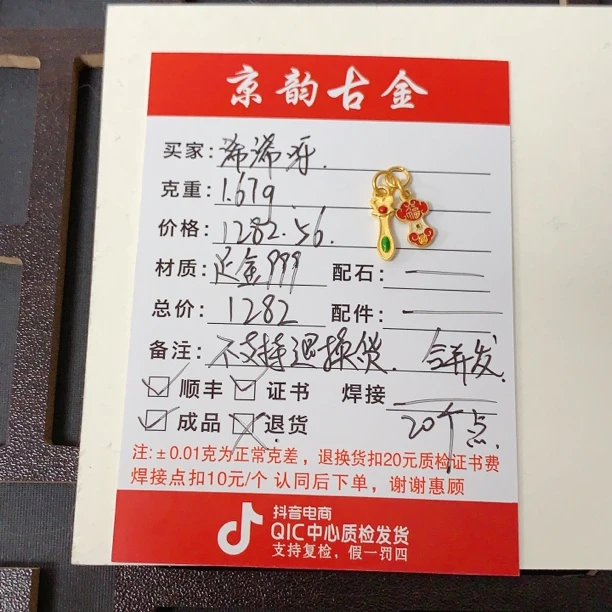 京韵古金
买家：浠浠呀.
克重：1.67g
价格：1282.56.
材质：足金999 配石：—
总价：1282 配件：—
备注：不支持退换货. 合并发.
顺丰 证书 焊接
成品 退货 20个点.
注:±0.01克为正常克差，退换货扣20元质检证书费
焊接点扣10元/个 认同后下单，谢谢惠顾
抖音电商
QIC中心质检发货
支持复检，假一罚四